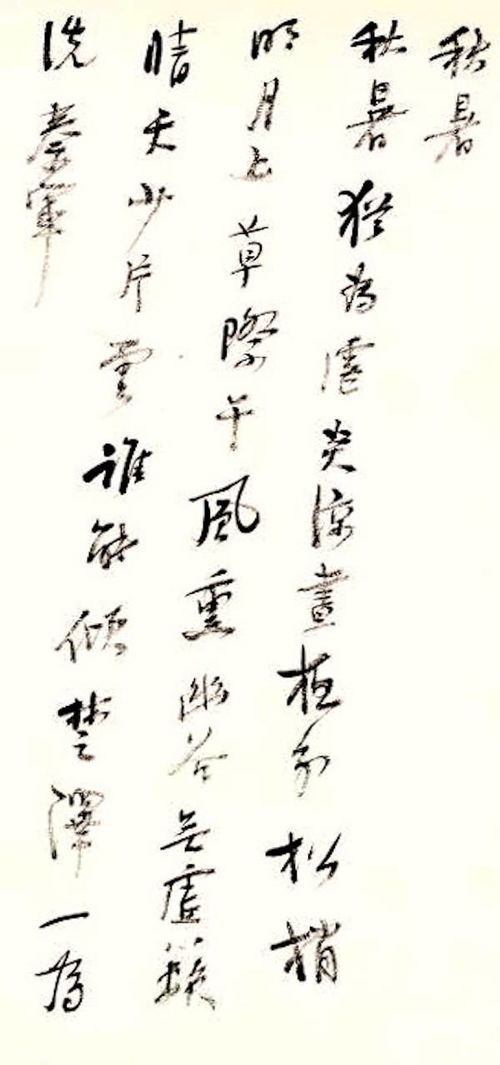 秋暑
秋暑猶為虐炎涼晝分松梢
明月上草際午風熏幽谷無虛籟
晴天少片雲誰能傾楚澤一為
洗秦軍